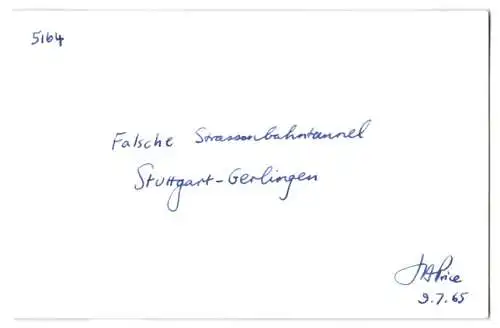 5164
Falsche Strassenbahntunnel
Stuttgart-Gerlingen
J H Price
9.7.65